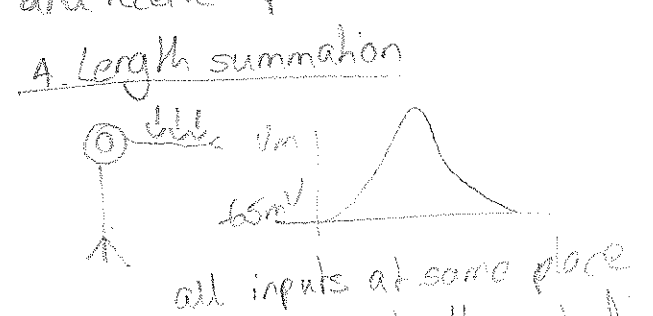 and
4. Length summation
Vm
-65mV
all inputs at same place